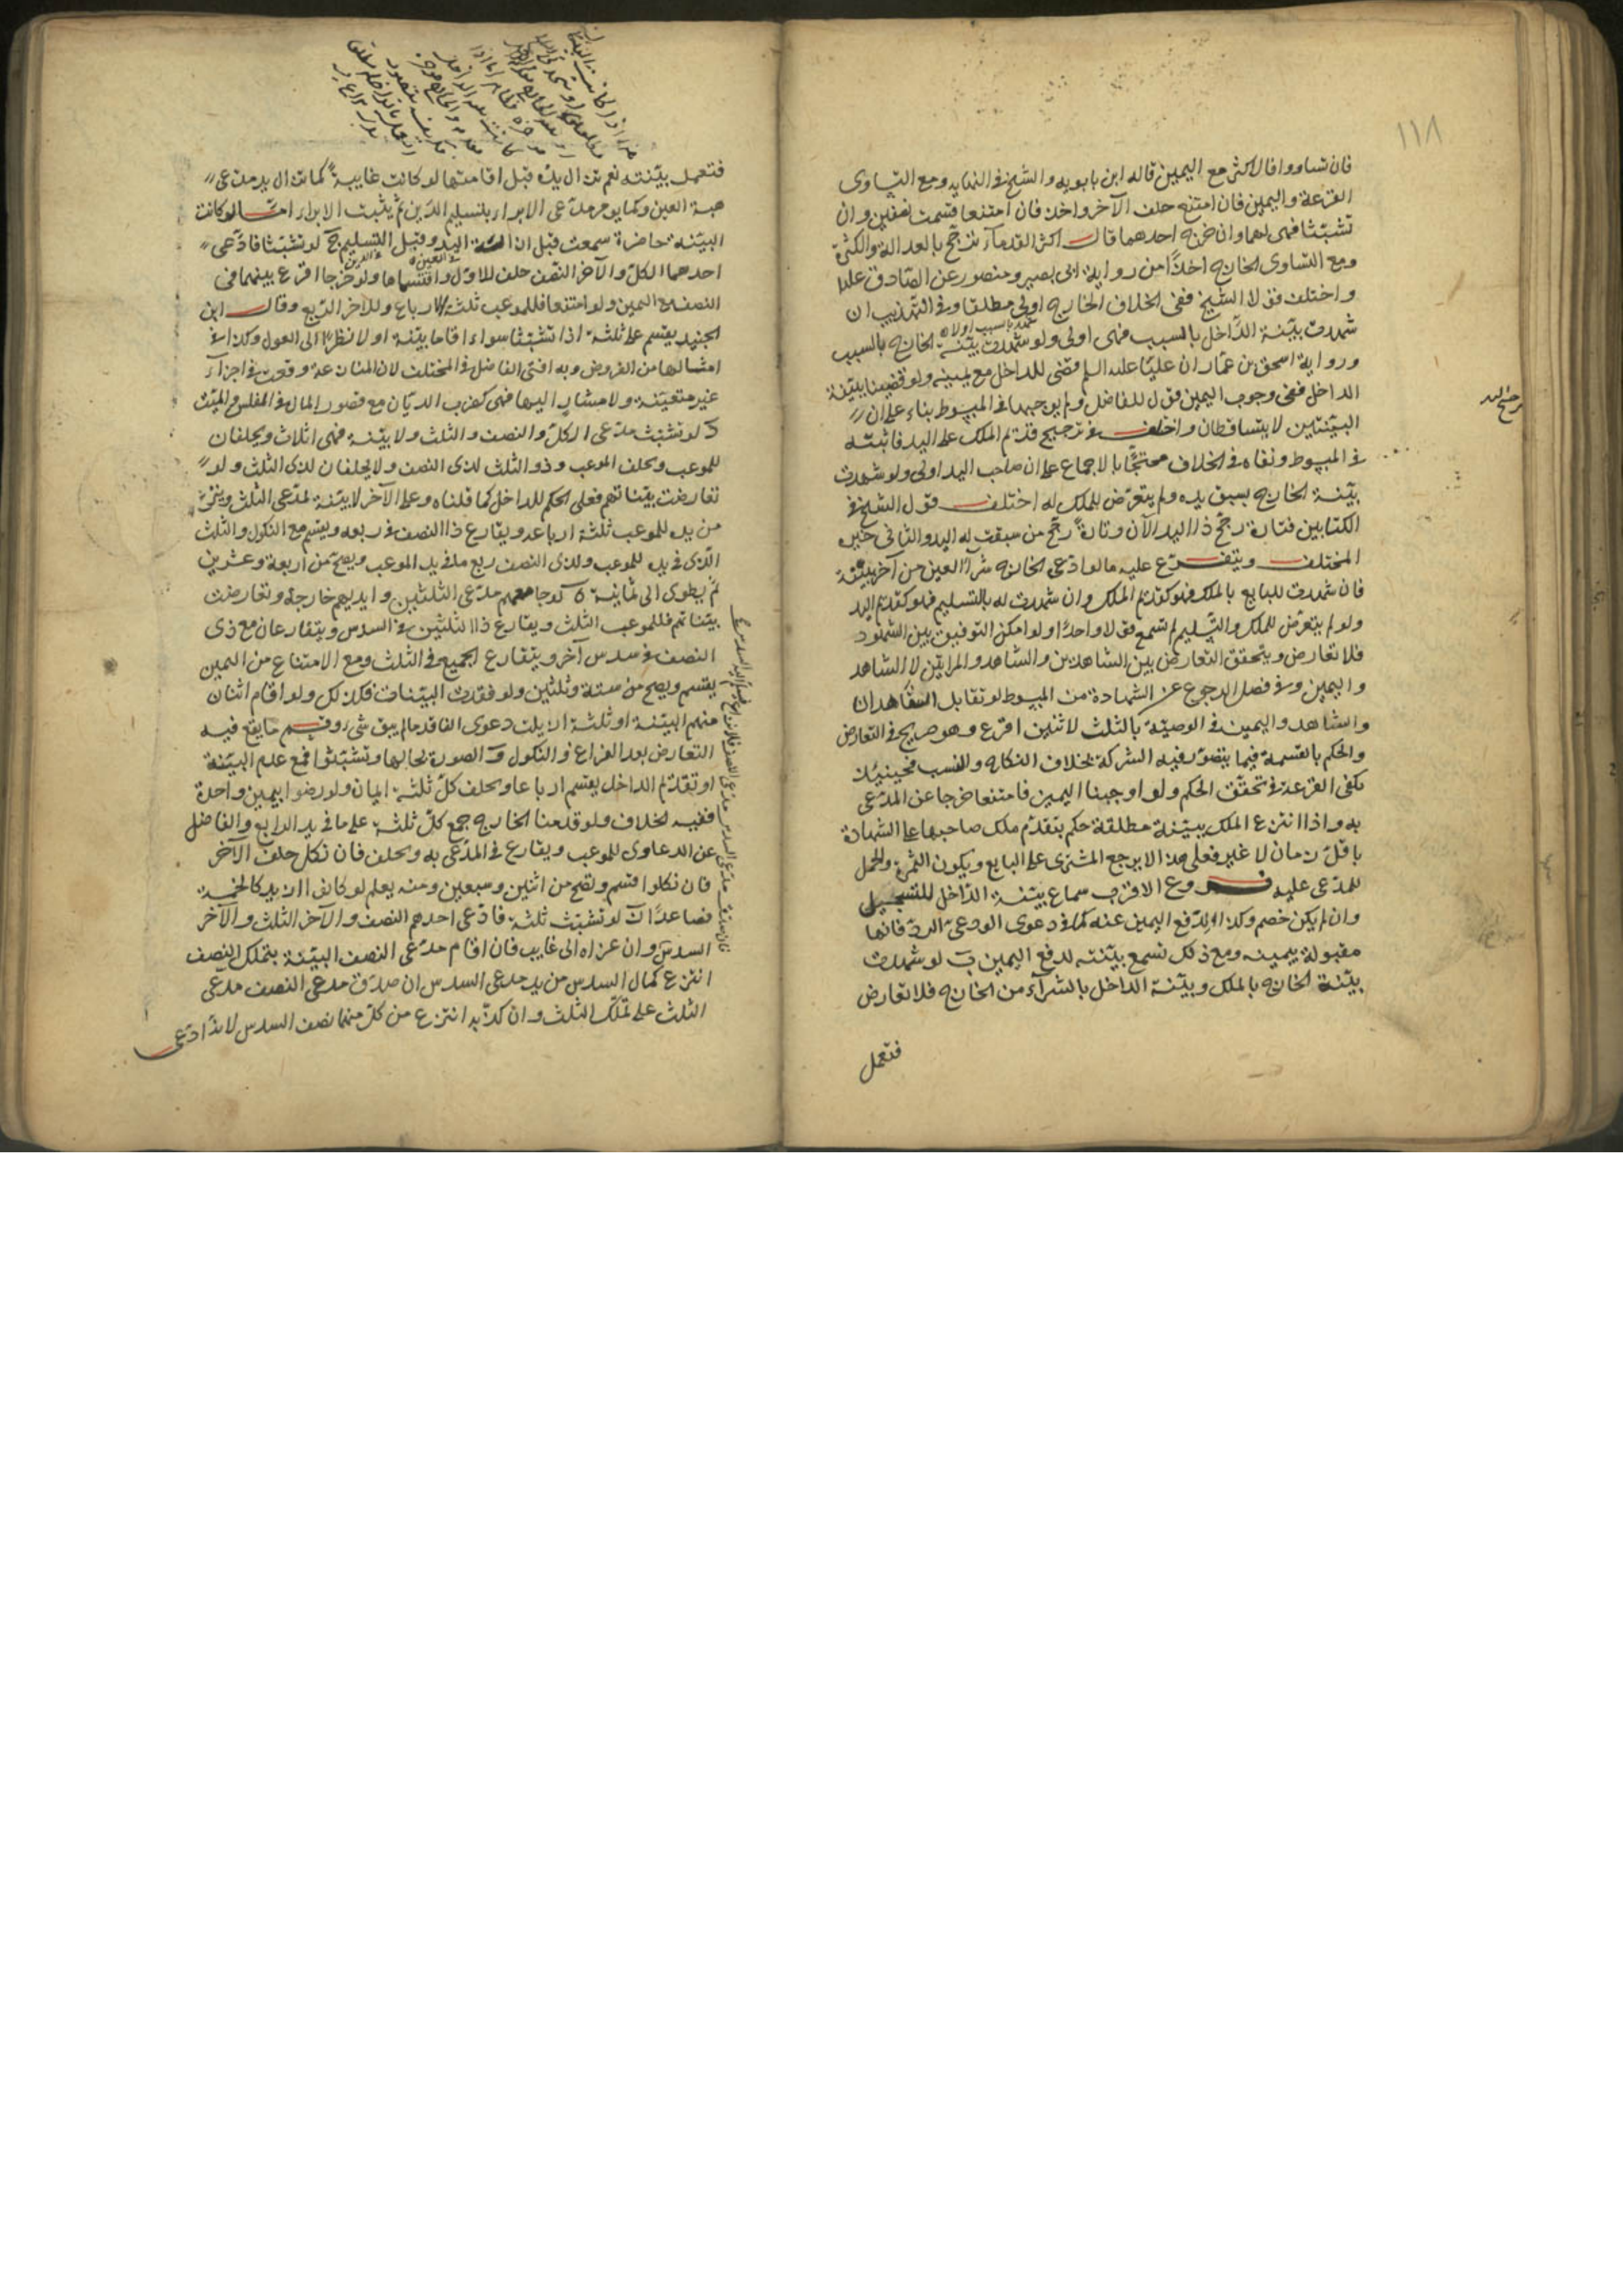 ١١٨
فان تساووا فالاكثر مع اليمين قاله ابن بابويه والشيخ في النهاية ومع التساوى
القرعة واليمين فان امتنع حلف الآخر واخذ فان امتنعا قسمت نصفين وان
تشبثا فهى لهما وان خرج احدهما قال اكثر القدمآء ترجح بالعدالة والكثرة
ومع التساوى الخارج اخذًا من رواية ابى بصير ومنصور عن الصادق عليه
واختلف قولا الشيخ ففى الخلاف الخارج اولى مطلقا وفى التهذيب ان
شهدت بيّنة الدّاخل بالسبب فهى اولى ولو شهدت بيّنة الخارج بالسبب
ورواية اسحق بن عمّار ان عليًا عليه السلم قضى للداخل مع يمينه ولو قضينا ببيّنة
الداخل ففى وجوب اليمين قول للفاضل ولم يوجبها في المبسوط بناء على ان
البيّنتين لا يتساقطان واختلف في ترجيح قدم الملك على اليد فاثبته
في المبسوط ونفاه في الخلاف محتجًا بالاجماع على ان صاحب اليد اولى ولو شهدت
بيّنة الخارج بسبق يده ولم يتعرّض للملك له اختلف قول الشيخ في
الكتابين فتارة رجّح ذا اليد الآن وتارةً رجّح من سبقت له اليد والثانى خيرة
المختلف ويتفرّع عليه ما لو ادعى الخارج شرآء العين من آخر ببيّنة
فان شهدت للبايع بالملك فهو كقدم الملك وان شهدت له بالتسليم فهو كقدم اليد
ولو لم يتعرّض للملك والتسليم لم تسمع قولا واحدًا ولو امكن التوفيق بين الشهود
فلا تعارض ويتحقق التعارض بين الشاهدين والشاهد والمراتين لا الشاهد
واليمين وفي فصل الرجوع عن الشهادة من المبسوط لو تقابل الشاهدان
والشاهد واليمين في الوصيّة بالثلث لاثنين اقرع وهو صريح في التعارض
والحكم بالقسمة فيما يتصوّر فيه الشركة بخلاف النكاح والنسب فحينئذ
يكفى القرعة في تحقّق الحكم ولو اوجبنا اليمين فامتنعا خرجا عن المدّعى
به واذا انتزع الملك ببيّنة مطلقة حكم بتقدّم ملك صاحبها على الشهادة
باقل زمان لا غير فعلى هذا لا يرجع المشترى على البايع ويكون الثمرة والحمل
للمدّعى عليه فروع الاقرب سماع بيّنة الدّاخل للتسجيل
وان لم يكن خصم وكذا لدفع اليمين عنه كما في دعوى الودعىّ الردّ فانها
مقبولة بيمينه ومع ذلك تسمع بيّنته لدفع اليمين ب لو شهدت
بيّنة الخارج بالملك وبيّنة الداخل بالشرآء من الخارج فلا تعارض
فتعمل
فتعمل بيّنته نعم تزال يده قبل اقامتها لو كانت غايبة كما تزال يد مدّعى
هبة العين وكما يؤمر مدّعى الابراء بتسليم الدّين ثم يثبت الابراء امّا لو كانت
البيّنة حاضرة سمعت قبل ازالة اليد وقبل التسليم ج لو تشبّثا فادّعى
احدهما الكلّ والآخر النصف حلف للاوّل واقتسماها ولو خرجا اقرع بينهما في
النصف مع اليمين ولو امتنعا فللموعب ثلثة الارباع وللآخر الرّبع وقال ابن
الجنيد يقسم على ثلثة اذا تشبّثا سواء اقاما بيّنة او لا نظرًا الى العول وكذا في
امثالها من الفروض وبه افتى الفاضل في المختلف لان المنازعة وقعت في اجزآء
غير متعيّنة ولا مشار اليها فهى كضرب الديّان مع قصور المال في المفلس والميّت
د لو تشبّث مدّعى الكلّ والنصف والثلث ولا بيّنة فهى اثلاث ويحلفان
للموعب ويحلف الموعب وذو الثلث لذى النصف ولا يحلفان لذى الثلث ولو
تعارضت بيّناتهم فعلى الحكم للداخل كما قلناه وعلى الآخر لا بيّنة لمدّعى الثلث وينتزع
من يده للموعب ثلثة ارباعه ويقارع ذا النصف في ربعه ويقسم مع النكول والثلث
الّذى في يد للموعب ولذى النصف ربع ما في يد الموعب ويصحّ من اربعة وعشرين
ثم يطوى الى ثمانية ه لو جامعهم مدّعى الثلثين وايديهم خارجة وتعارضت
بيّناتهم فللموعب الثلث ويقارع ذا الثلثين في السدس ويتقارعان مع ذى
النصف في سدس آخر ويتقارع الجميع في الثلث ومع الامتناع من اليمين
يقسم ويصح من ستة وثلثين ولو فقدت البيّنات فكذلك ولو اقام اثنان
منهم البيّنة او ثلثة ازيلت دعوى الفاقد ما لم يبق شىء وقسم ما يقع فيه
التعارض بعد القراع والنكول و الصورة بحالها وتشبّثوا فمع عدم البيّنة
او تقدّم الداخل يقسم ارباعا ويحلف كلّ ثلثة ايمان ولو رضوا بيمين واحدة
ففيه الخلاف ولو قدمنا الخارج جمع كلّ ثلثة على ما في يد الرابع والفاضل
عن الدعاوى للموعب ويقارع في المدّعى به ويحلف فان نكل حلف الآخر
فان نكلوا اقسم وتصح من اثنين وسبعين ومنه يعلم لو كانوا ازيد كالخمسة
فصاعدًا ز لو تشبّث ثلثة فادّعى احدهم النصف والآخر الثلث والآخر
السدس وان عزاه الى غايب فان اقام مدّعى النصف البيّنة بتملك النصف
انتزع كمال السدس من يد مدعى السدس ان صدّق مدعى النصف مدعى
الثلث على تملّك الثلث وان كذّبه انتزع من كلّ منهما نصف السدس لانّه ادّعى